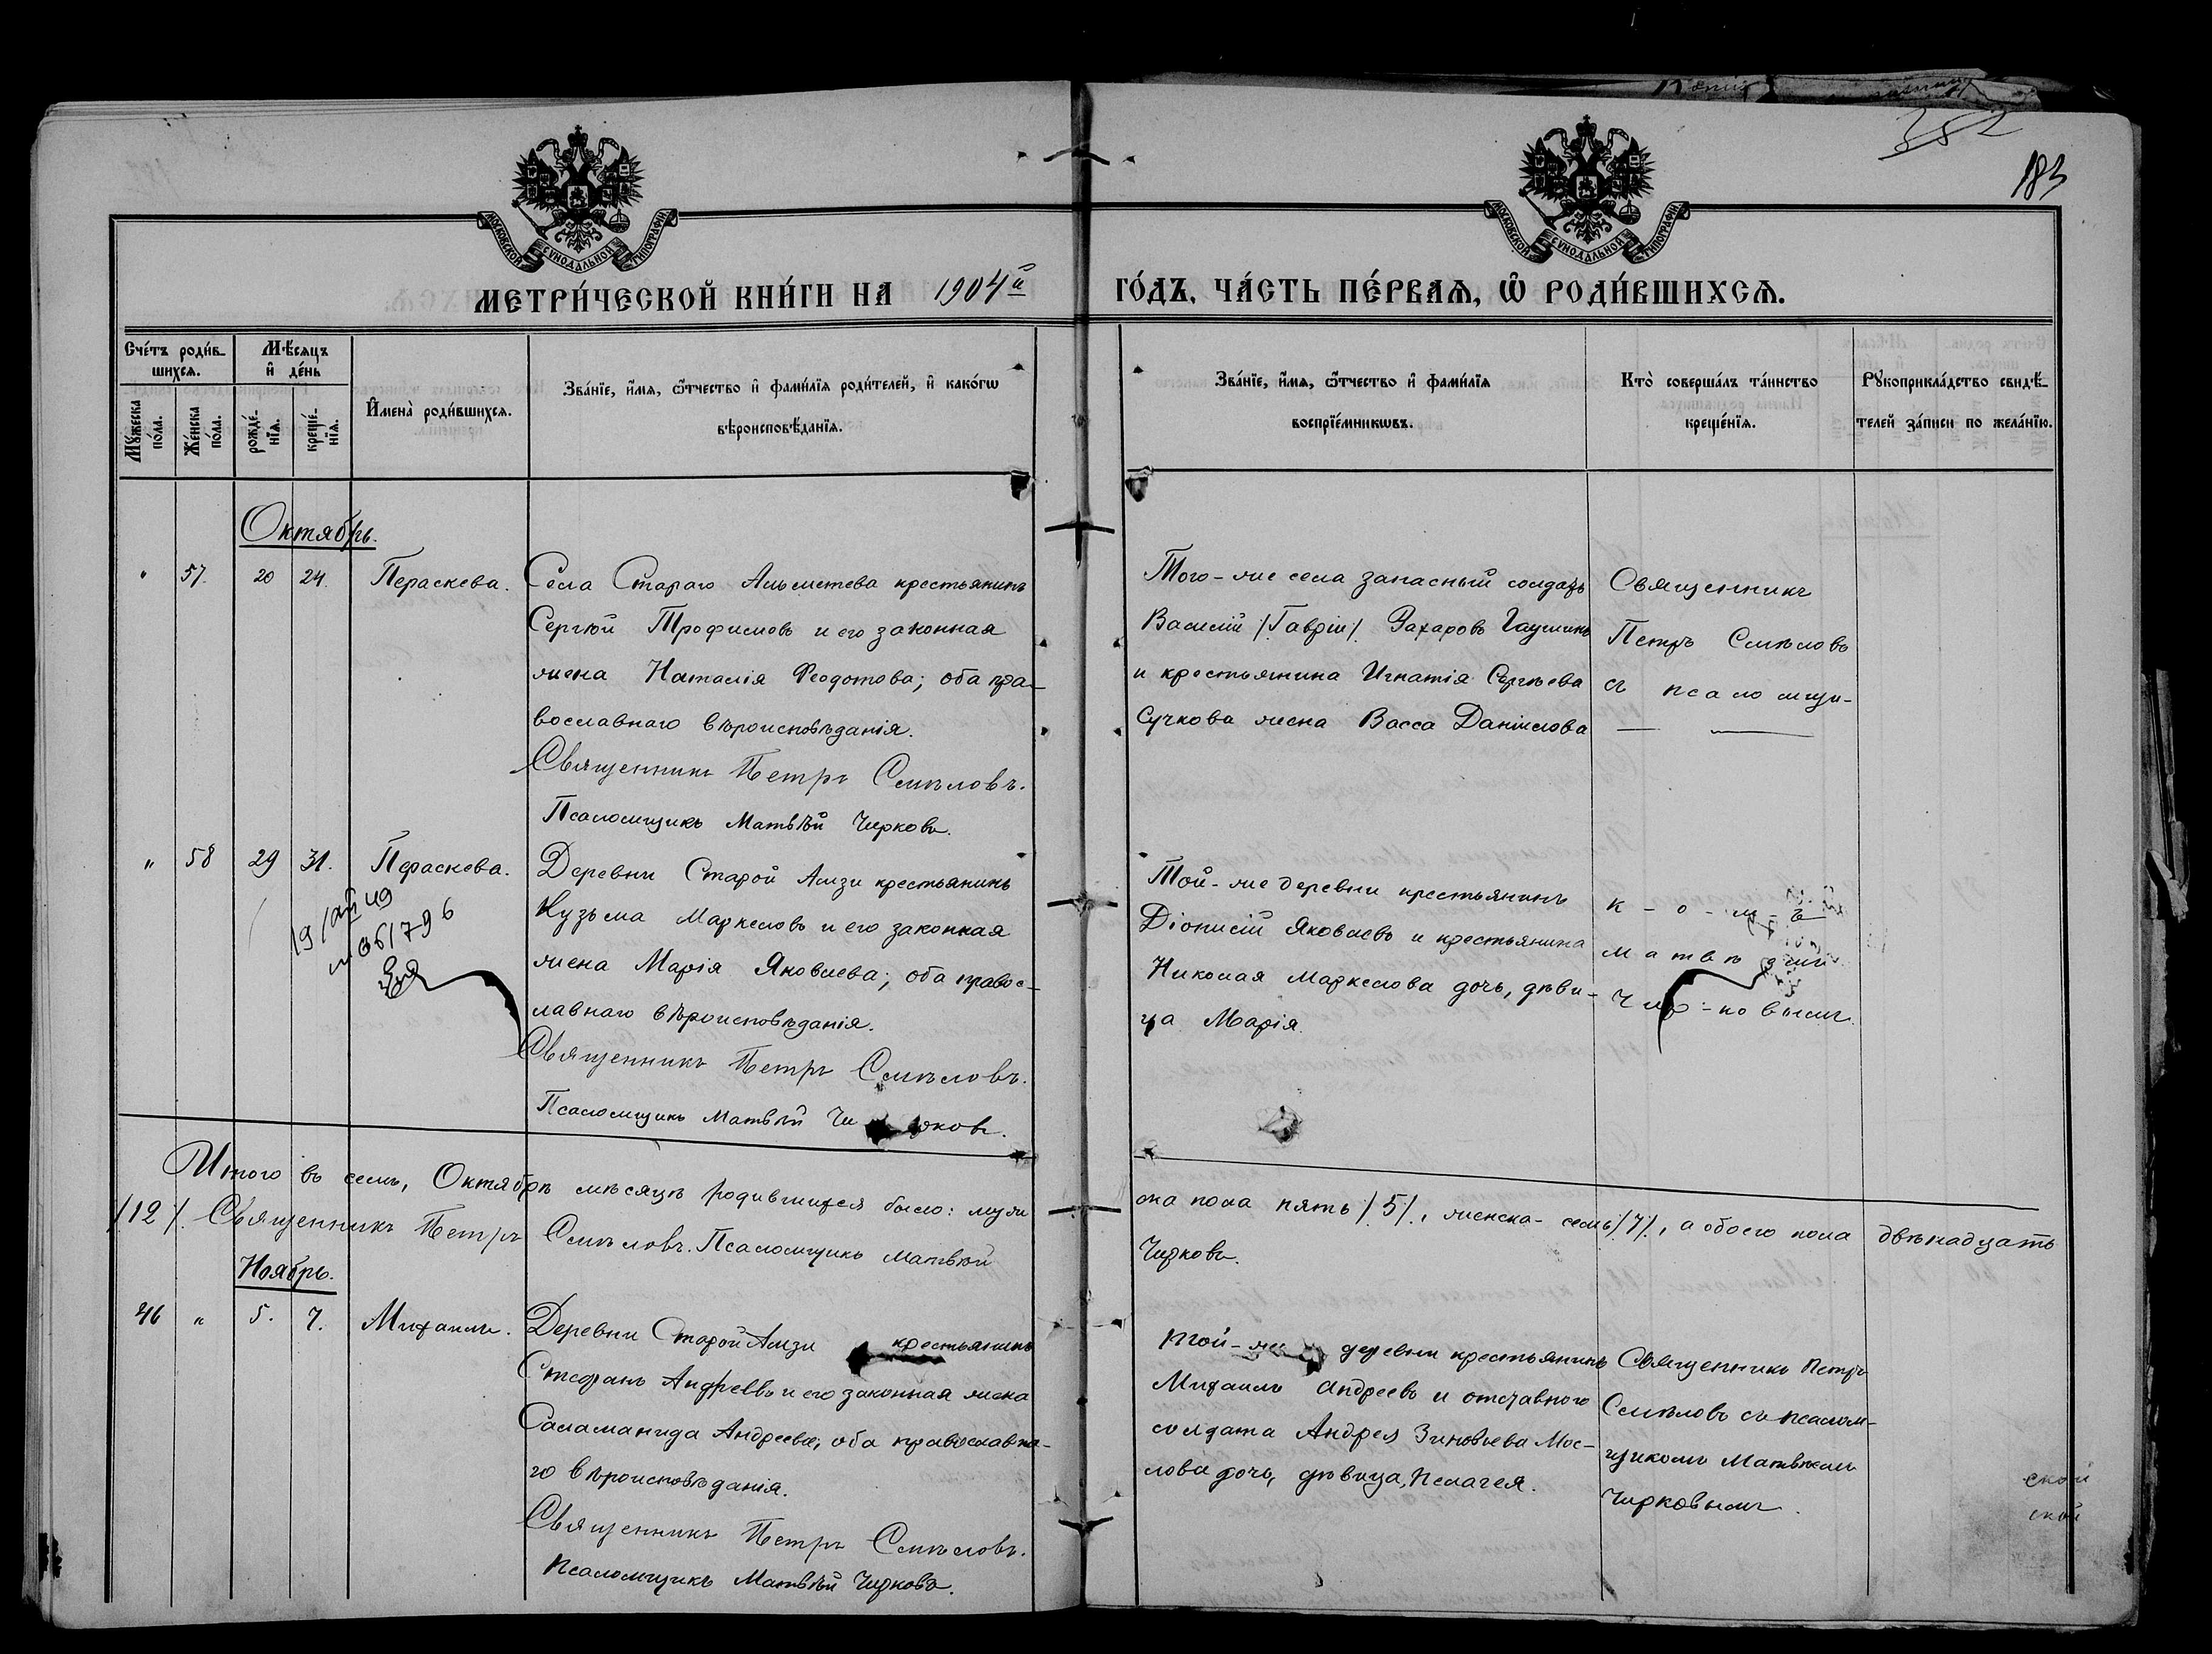 352
183
МОСКОВСКОЙ СѴНОДАЛЬНОЙ ТИПОГРАФІИ
МОСКОВСКОЙ СѴНОДАЛЬНОЙ ТИПОГРАФІИ
МЕТРИ́ЧЕСКОЙ КНИ́ГИ НА 1904й
ГО́ДЪ, ЧА́СТЬ ПЕ́РВАѦ, Ѡ҆ РОДИ́ВШИХСѦ.
Сче́тъ роди́в-
шихсѧ.
Мꙋ́жеска по́ла.
Же́нска по́ла.
Мѣ́сѧцъ и҆ де́нь
рожде́-нїѧ.
креще́-нїѧ.
И҆мена̀ роди́вшихсѧ.
Зва́нїе, и҆́мѧ, ѻ҆́тчество и҆ фами́лїѧ роди́телей, и҆ како́гѡ
вѣроисповѣ́данїѧ.
Зва́нїе, и҆́мѧ, ѻ҆́тчество и҆ фами́лїѧ
воспрїе́мникѡвъ.
Кто̀ соверша́лъ та́инство
креще́нїѧ.
Рꙋкоприкла́дство свидѣ́-
телей за́писи по жела́нїю.
Октябрь.
" 57. 20 24. Параскева.
Села Стараго Альметева крестьянинъ
Сергѣй Трофимовъ и его законная
жена Наталія Ѳеодотова; оба пра-
вославнаго вѣроисповѣданія.
Священникъ Петръ Смѣловъ.
Псаломщикъ Матвѣй Чирковъ.
Того-же села запасный солдатъ
Василій /Гавріил/. Захаровъ
и крестьянина Игнатія Сергѣева
Сучкова жена Васса Даніилова
Священникъ
Петръ Смѣловъ
съ псаломщи-
" 58 29 31. Параскева.
Деревни Старой Амзи крестьянинъ
Кузьма Маркеловъ и его законная
жена Марія Яковлева; оба правос-
лавнаго вѣроисповѣданія.
Священникъ Петръ Смѣловъ.
Псаломщикъ Матвѣй Чирковъ.
Той-же деревни крестьянинъ
Діонисій Яковлевъ и крестьянина
Николая Маркелова дочь, дѣви-
ца Марія.
к - о - м - ъ
Матвѣемъ
Чир-ковымъ.
Итого въ семъ, Октябрѣ мѣсяцѣ родившихся было: муже
ска пола пять /5/, женска - семь /7/, а обоего пола двѣнадцать
/12/. Священникъ Петръ Смѣловъ. Псаломщикъ Матвѣй
Чирковъ.
Ноябрь.
46 " 5. 7. Михаилъ.
Деревни Старой Амзи крестьянинъ
Стефанъ Андреевъ и его законная жена
Саламанида Андреева; оба православна-
го вѣроисповѣданія.
Священникъ Петръ Смѣловъ.
Псаломщикъ Матвѣй Чирковъ.
Той-же деревни крестьянинъ
Михаилъ Андреевъ и отставного
солдата Андрея Зиновьева Мос-
лова дочь, дѣвица, Пелагея.
Священникъ Петръ
Смѣловъ съ псалом-
щикомъ Матвѣемъ
Чирковымъ.